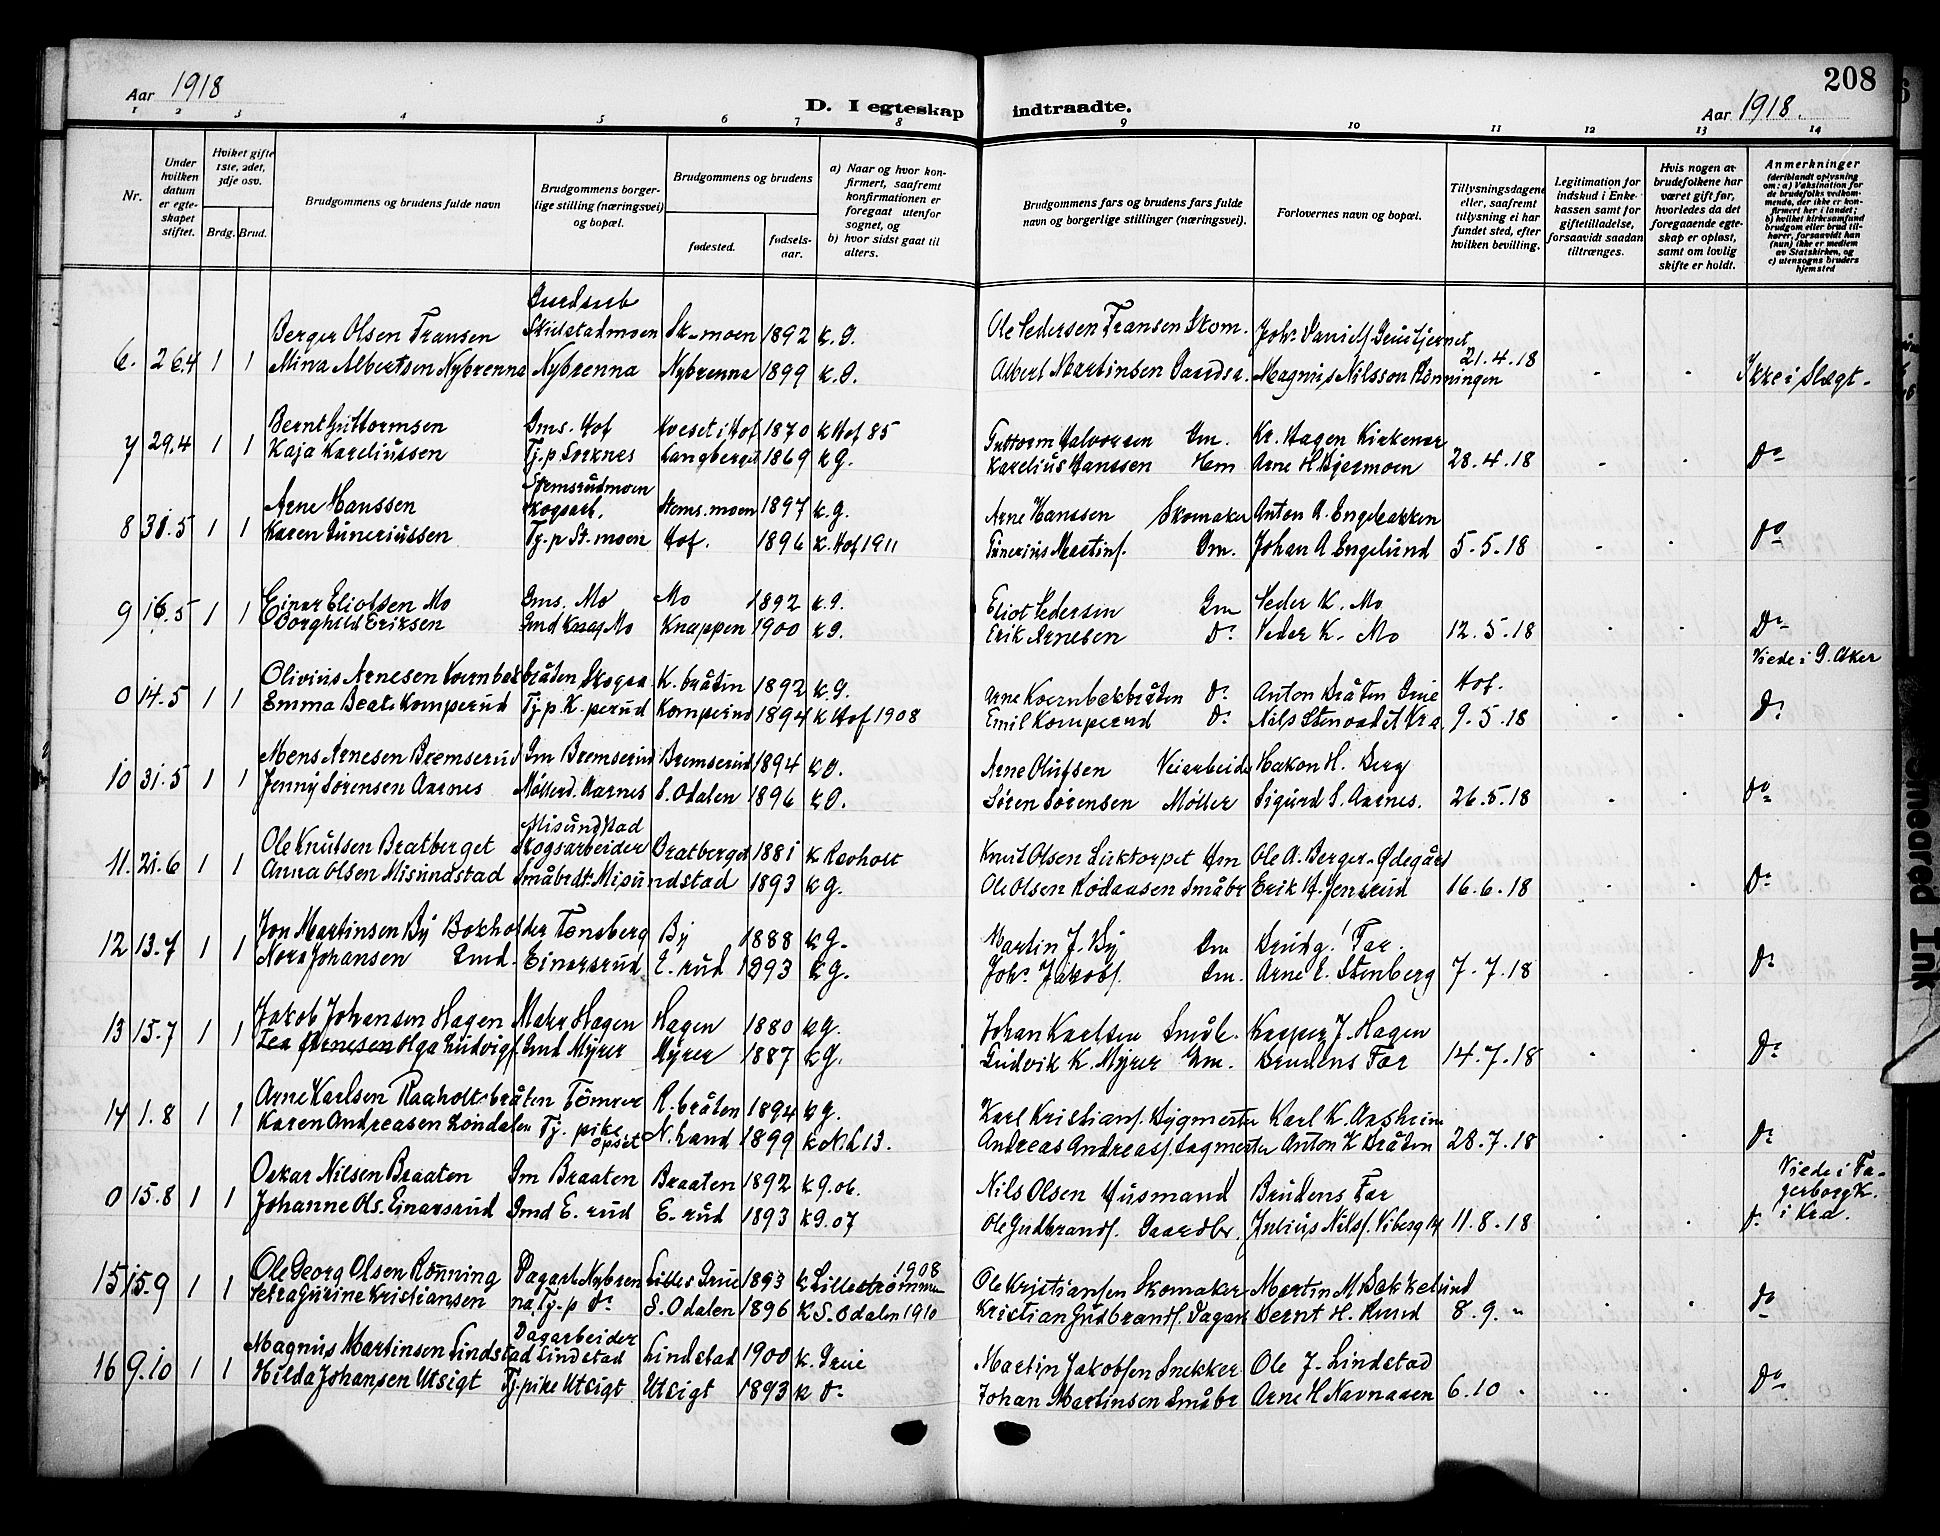 208
Aar 1918
D. I egteskap indtraadte.
Aar 1918.
1 2 3 4 5 6 7 8 9 10 11 12 13 14
Nr.
Under hvilken datum er egteskapet stiftet.
Hvilket gifte 1ste, 2det, 3dje osv.
Brdg. Brud.
Brudgommens og brudens fulde navn
Brudgommens borgerlige stilling (næringsvei) og bopæl.
Brudgommens og brudens
fødested.
fødselsaar.
a) Naar og hvor konfirmert, saafremt konfirmationen er foregaat utenfor sognet, og
b) hvor sidst gaat til alters.
Brudgommens fars og brudens fars fulde navn og borgerlige stillinger (næringsvei).
Forlovernes navn og bopæl.
Tillysningsdagene eller, saafremt tillysning ei har fundet sted, efter hvilken bevilling.
Legitimation for indskud i Enkekassen samt for giftetilladelse, forsaavidt saadan tiltrænges.
Hvis nogen av brudefolkene har været gift før, hvorledes da det foregaaende egteskap er opløst, samt om lovlig skifte er holdt.
Anmerkninger
(deriblandt oplysning om: a) Vaksination for de brudefolks vedkommende, der ikke er konfirmert her i landet; b) hvilket kirkesamfund brudgom eller brud tilhører, forsaavidt han (hun) ikke er medlem av Statskirken, og c) utensogns bruders hjemsted
Berger Olsen Fransen Skulstadmoen Sk-moen 1892 k. G. Ole Pedersen Fransen Skom.
6. 26.4 1 1 Mina Albertsen Nybrenna Nybrenna Nybrenna 1899 k. G. Albert Martinsen Magnus Nilsson Rönningen 21.4.18 Ikke i Slægt.
Bernt Guttormsen Gms. Hof i Hof 1870 k Hof 85 Guttorm Halvorsen Gm. Kr. Hagen Kirkenær
7 29.4 1 1 Kaja Kareliussen Tj. p Langberget 1869 k G. Karelius Hanssen Hm Arne H. Bjermoen 28.4.18 Do
Stemsrudmoen
Arne Hanssen Skogsarb. Stems.moen 1897 k. G. Arne Hanssen Skomaker Anton A. Engebakken
8 31.5 1 1 Karen Tj. p St. moen Hof. 1896 k. Hof 1911 Martins. Gm. Johan A Engelund 5.5.18 Do
Einar Eliotsen Mo Gms. Mo Mo 1892 k. G. Eliot Pedersen Gm Peder K. Mo
9 16.5 1 1 Borghild Eriksen Gmd Mo Knappen 1900 k G. Erik Arnesen Do Peder K. Mo 12.5.18 Do
Viede i G. Aker
Olivius Arnesen Kvernbekbråten Skogsa. K. bråten 1892 k. G. Arne Kvernbekbråten Do Anton Bråten Grue Hof.
0 14.5 1 1 Emma Beate Komperud Tj. p. K. perud Komperud 1894 k Hof 1908 Emil Komperud Do Nils 9.5.18 Do
Mens Arnesen Bremserud Gm Bremserud Bremserud 1894 k G. Arne Olufsen Veiarbeider Hakon H. Berg
10 31.5 1 1 Jenny Sørensen Aarnes Møllerd. Aarnes S. Odalen 1896 k G. Søren Sørensen Møller Sigurd S. Aarnes. 26.5.18 Do
Misundstad
Ole Knutsen Bratberget Skogsarbeider Bratberget 1881 k Knut Olsen Hm Ole A. Berger Ødegård
11. 21.6 1 1 Anna Olsen Misundstad Småbrdt. Misundstad 1893 k G. Ole Olsen Småbr Erik A. Jensrud 16.6.18 Do
Jon Martinsen By Bokholder Tønsberg By 1888 k G. Martin J. By Gm Brudg. Far.
12 13.7 1 1 Nora Johansen Gmd. Einarsrud E. rud 1893 k G. Johs. Jakobs. Gm. Arne E. Stenberg 7.7.18 Do
Jakob Johansen Hagen Maler Hagen Hagen 1880 k G. Johan Karlsen Småb. Kasper J. Hagen
13 15.7 1 1 Tea Arnesen Olga Ludvigs. Gmd Myrer Myrer 1887 k G. Ludvik K. Myrer Gm. Brudens Far 14.7.18 Do
Arne Karlsen Raaholtsbråten Tømrer R. bråten 1894 k G. Karl Kristians. Bygmester Karl K. Aasheim
14 1.8 1 1 Karen Andreasen Lundalen Tj. pike opset N. land 1899 k N.L 13. Andreas Andreass. Sagmester Anton K Bråten 28.7.18 Do
Oskar Nilsen Braaten Gm Braaten Braaten 1892 k G. 06. Nils Olsen Husmand Brudens Far Viede i Fagerborg K. i Kra.
0 15.8 1 1 Johanne Ols. Einarsrud Gmd E. rud E. rud 1893 k G. 07 Ole Gudbrands. Gaardbr. Julius Nils. Viberg 11.8.18 Do
Ole Georg Olsen Rønning Dagarb Nybrenna Lilles Grue 1893 k Lillestrømmen 1908 Ole Kristiansen Skomaker Martin M Bækkelund
15 15.9 1 1 Petra Gurine Kristiansen Tj. p Do S. Odalen 1896 k S. Odalen 1910 Kristian Gudbrands. Dagarb Bernt H. Rund 8.9. " Do
Magnus Martinsen Lindstad Dagarbeider Lindstad Lindstad 1900 k. Grue Martin Jakobsen Snekker Ole J. Lindstad
16 9.10 1 1 Hilda Johansen Utsigt Tj. pike Utsigt Utsigt 1893 k Do Johan Martinsen Småbr Arne H Navnaasen 6.10 " Do
Smeared Ink